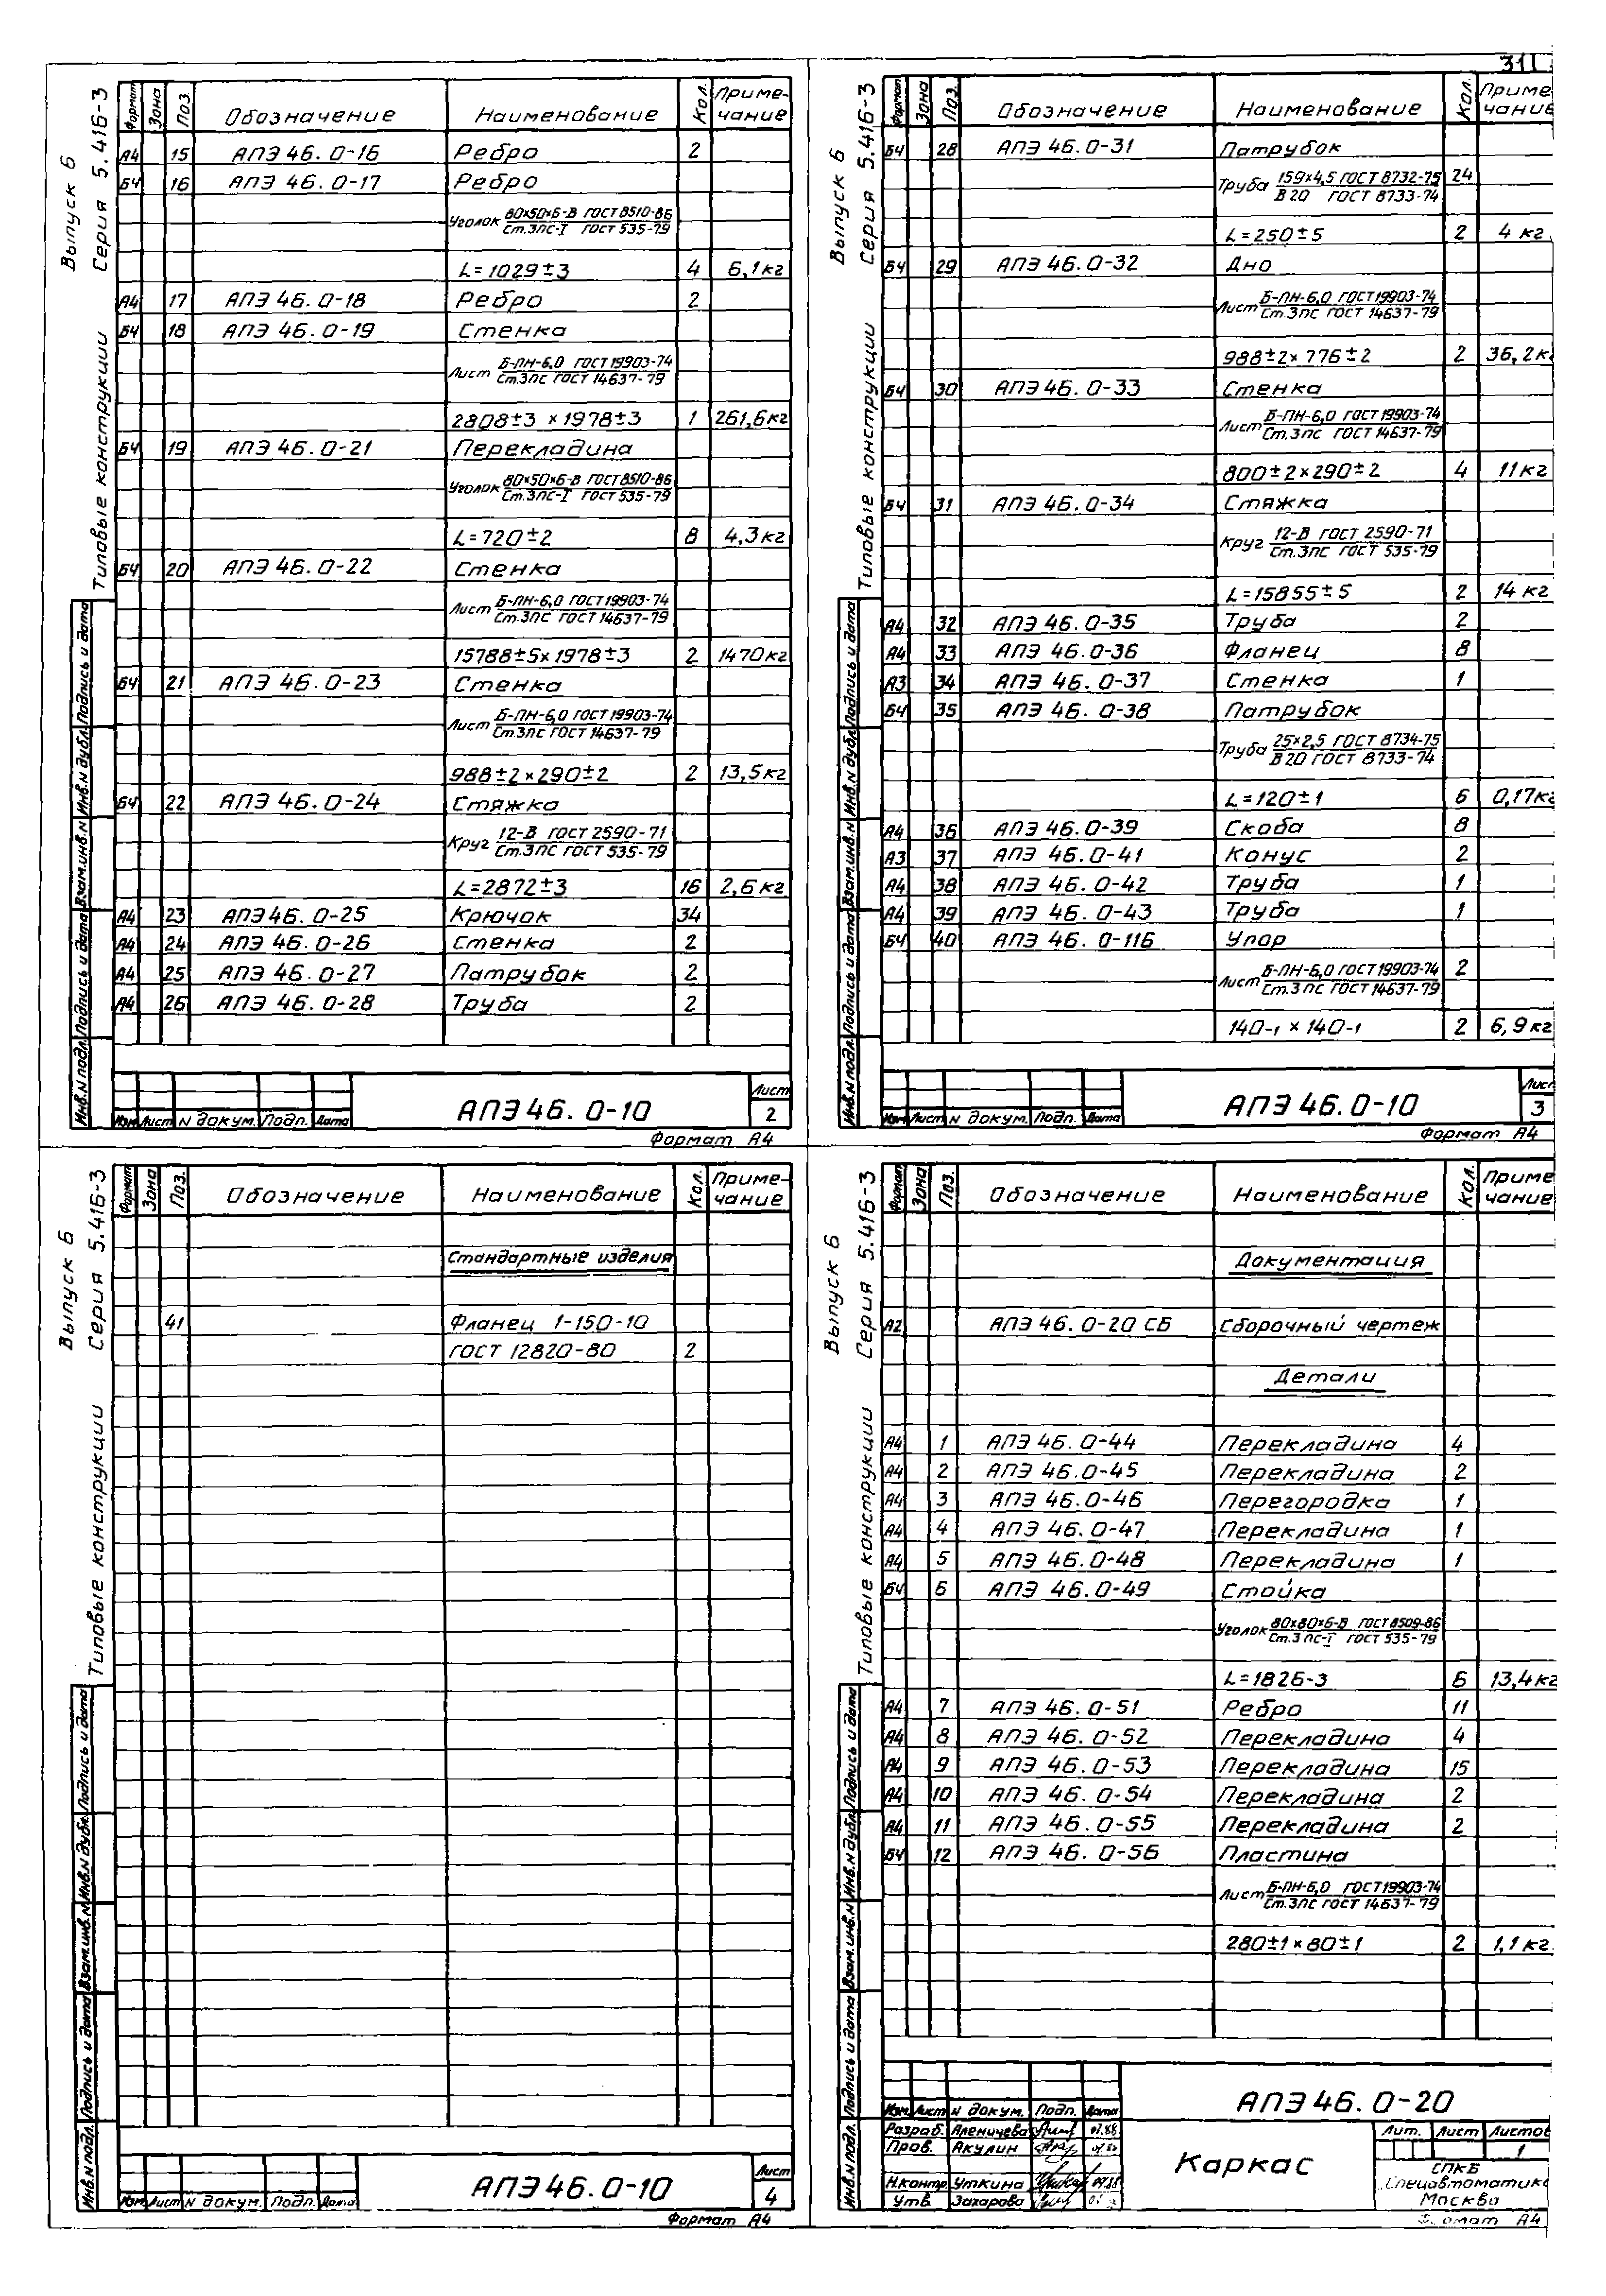 311
Выпуск 6
Серия 5.416-3
Типовые конструкции
Формат Зона Поз. Обозначение Наименование Кол. Приме-
чание
А4 15 АПЭ 46.0-16 Ребро 2
БЧ 16 АПЭ 46.0-17 Ребро
Уголок 80×50×6-В ГОСТ 8510-86
Ст.3пс-I ГОСТ 535-79
L=1029±3 4 6,1кг
А4 17 АПЭ 46.0-18 Ребро 2
БЧ 18 АПЭ 46.0-19 Стенка
Лист Б-ПН-6,0 ГОСТ 19903-74
Ст.3пс ГОСТ 14637-79
2808±3 ×1978±3 1 261,6кг
БЧ 19 АПЭ 46.0-21 Перекладина
Уголок 80×50×6-В ГОСТ 8510-86
Ст.3пс-I ГОСТ 535-79
L=720±2 8 4,3кг
БЧ 20 АПЭ 46.0-22 Стенка
Лист Б-ПН-6,0 ГОСТ 19903-74
Ст.3пс ГОСТ 14637-79
15788±5×1978±3 2 1470кг
БЧ 21 АПЭ 46.0-23 Стенка
Лист Б-ПН-6,0 ГОСТ 19903-74
Ст.3пс ГОСТ 14637-79
988±2×290±2 2 13,5кг
БЧ 22 АПЭ 46.0-24 Стяжка
Круг 12-В ГОСТ 2590-71
Ст.3пс ГОСТ 535-79
L=2872±3 16 2,6кг
А4 23 АПЭ 46.0-25 Крючок 34
А4 24 АПЭ 46.0-26 Стенка 2
А4 25 АПЭ 46.0-27 Патрубок 2
А4 26 АПЭ 46.0-28 Труба 2
Инв.N подл. Подпись и дата Взам.инв.N Инв.N дубл. Подпись и дата
Изм. Лист N докум. Подп. Дата
АПЭ 46.0-10
Лист
2
Формат А4
Выпуск 6
Серия 5.416-3
Типовые конструкции
Формат Зона Поз. Обозначение Наименование Кол. Приме
чание
БЧ 28 АПЭ 46.0-31 Патрубок
Труба 159×4,5 ГОСТ 8732-75 24
В 20 ГОСТ 8733-74
L=250±5 2 4 кг
БЧ 29 АПЭ 46.0-32 Дно
Лист Б-ПН-6,0 ГОСТ 19903-74
Ст.3пс ГОСТ 14637-79
988±2×776±2 2 36,2кг
БЧ 30 АПЭ 46.0-33 Стенка
Лист Б-ПН-6,0 ГОСТ 19903-74
Ст.3пс ГОСТ 14637-79
800±2×290±2 4 11кг
БЧ 31 АПЭ 46.0-34 Стяжка
Круг 12-В ГОСТ 2590-71
Ст.3пс ГОСТ 535-79
L=15855±5 2 14 кг
А4 32 АПЭ 46.0-35 Труба 2
А4 33 АПЭ 46.0-36 Фланец 8
А3 34 АПЭ 46.0-37 Стенка 1
БЧ 35 АПЭ 46.0-38 Патрубок
Труба 25×2,5 ГОСТ 8734-75
В 20 ГОСТ 8733-74
L=120±1 6 0,17кг
А4 36 АПЭ 46.0-39 Скоба 8
А3 37 АПЭ 46.0-41 Конус 2
А4 38 АПЭ 46.0-42 Труба 1
А4 39 АПЭ 46.0-43 Труба 1
БЧ 40 АПЭ 46.0-116 Упор
Лист Б-ПН-6,0 ГОСТ 19903-74 2
Ст.3пс ГОСТ 14637-79
140-1 × 140-1 2 6,9кг
Инв.N подл. Подпись и дата Взам.инв.N Инв.N дубл. Подпись и дата
Изм. Лист N докум. Подп. Дата
АПЭ 46.0-10
Лист
3
Формат А4
Выпуск 6
Серия 5.416-3
Типовые конструкции
Формат Зона Поз. Обозначение Наименование Кол. Приме-
чание
Стандартные изделия
41 Фланец 1-150-10
ГОСТ 12820-80 2
Инв.N подл. Подпись и дата Взам.инв.N Инв.N дубл. Подпись и дата
Изм. Лист N докум. Подп. Дата
АПЭ 46.0-10
Лист
4
Формат А4
Выпуск 6
Серия 5.416-3
Типовые конструкции
Формат Зона Поз. Обозначение Наименование Кол. Приме
чание
Документация
А2 АПЭ 46.0-20 СБ Сборочный чертеж
Детали
А4 1 АПЭ 46.0-44 Перекладина 4
А4 2 АПЭ 46.0-45 Перекладина 2
А4 3 АПЭ 46.0-46 Перегородка 1
А4 4 АПЭ 46.0-47 Перекладина 1
А4 5 АПЭ 46.0-48 Перекладина 1
БЧ 6 АПЭ 46.0-49 Стойка
Уголок 80×80×6-В ГОСТ 8509-86
Ст.3пс-I ГОСТ 535-79
L=1826-3 6 13,4кг
А4 7 АПЭ 46.0-51 Ребро 11
А4 8 АПЭ 46.0-52 Перекладина 4
А4 9 АПЭ 46.0-53 Перекладина 15
А4 10 АПЭ 46.0-54 Перекладина 2
А4 11 АПЭ 46.0-55 Перекладина 2
БЧ 12 АПЭ 46.0-56 Пластина
Лист Б-ПН-6,0 ГОСТ 19903-74
Ст.3пс ГОСТ 14637-79
280±1×80±1 2 1,1кг
Инв.N подл. Подпись и дата Взам.инв.N Инв.N дубл. Подпись и дата
АПЭ 46.0-20
Изм. Лист N докум. Подп. Дата
Разраб. Аленичева 07.88
Пров. Акулин
Н.контр. Уткина
Утв. Захарова
Каркас
Лит. Лист Листов
1
СПКБ
Спецавтоматика
Москва
Формат А4